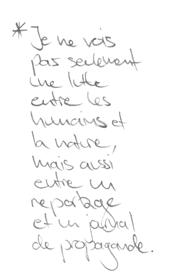 * Je ne vois
pas seulement
une lutte
entre les
humains et
la nature,
mais aussi
entre un
reportage
et un journal
de propagande.